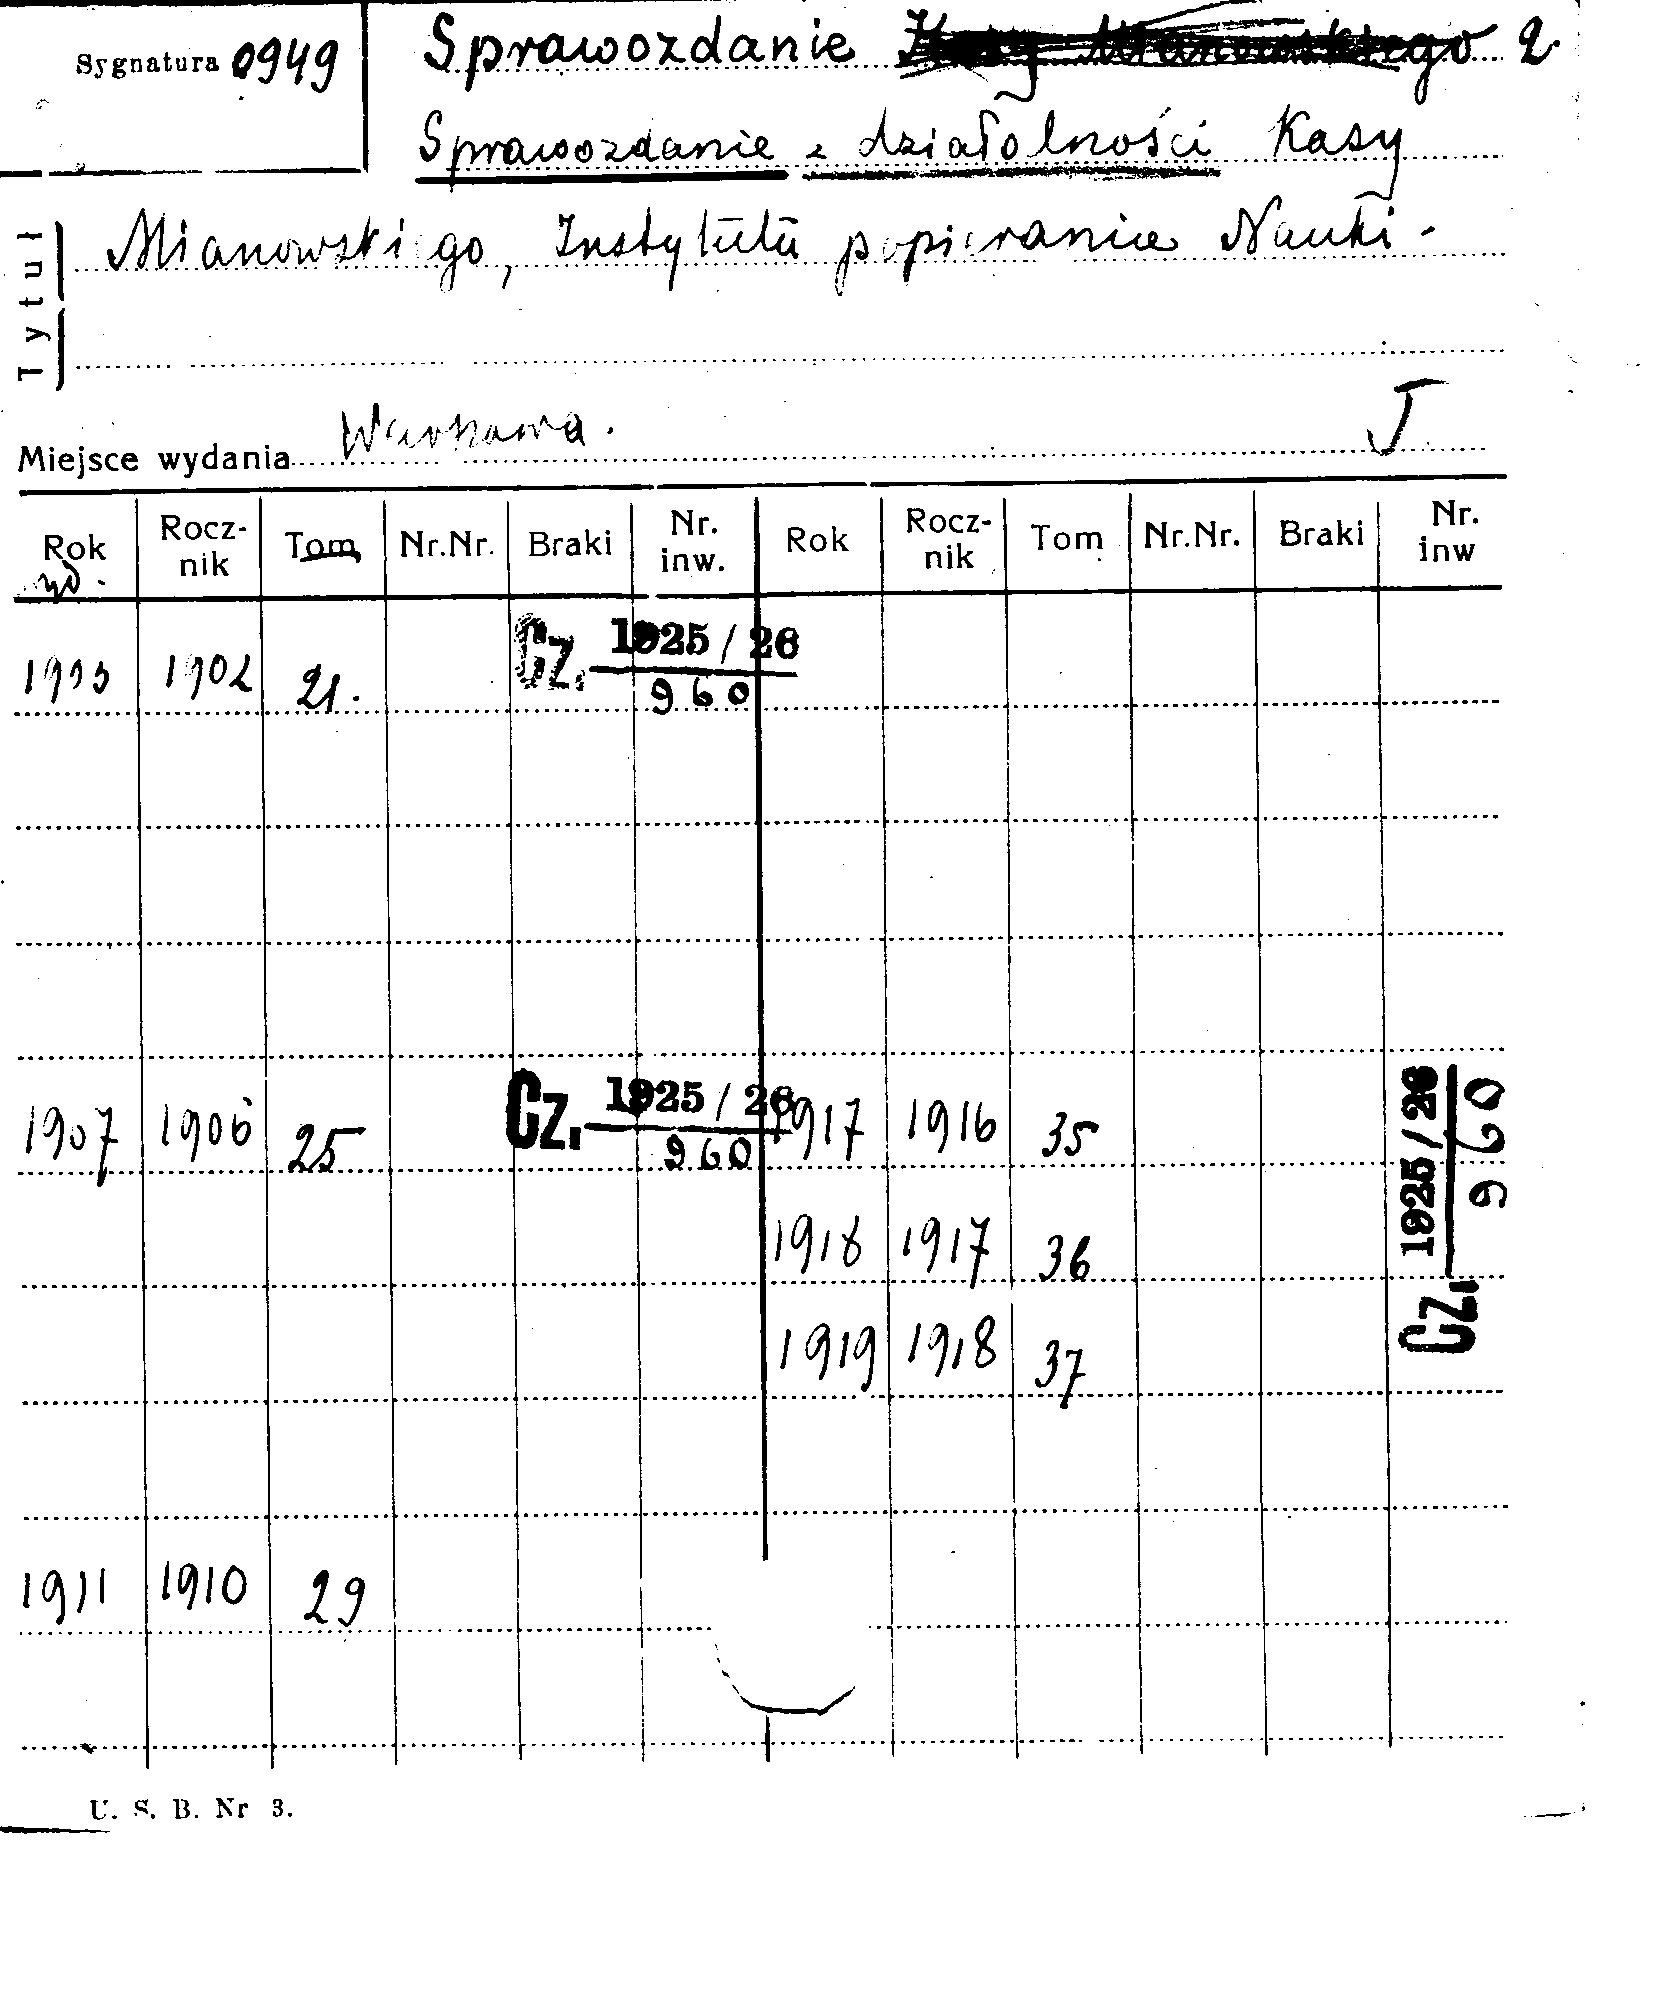 Sygnatura 0949
Sprawozdanie Kasy Mianowskiego 2.
Sprawozdanie z działolności Kasy
Mianowskiego, Instytutu popierania Nauki.
Tytuł
Miejsce wydania Warszawa. J
Rok wyd. Rocz-nik Tom Nr.Nr. Braki Nr. inw. Rok Rocz-nik Tom Nr.Nr. Braki Nr. inw
1903 1902 21. Cz. 1925/26 960
1907 1906 25 Cz. 1925/26 960 1917 1916 35 Cz. 1925/26 960
1918 1917 36
1919 1918 37
1911 1910 29
U. S. B. Nr 3.